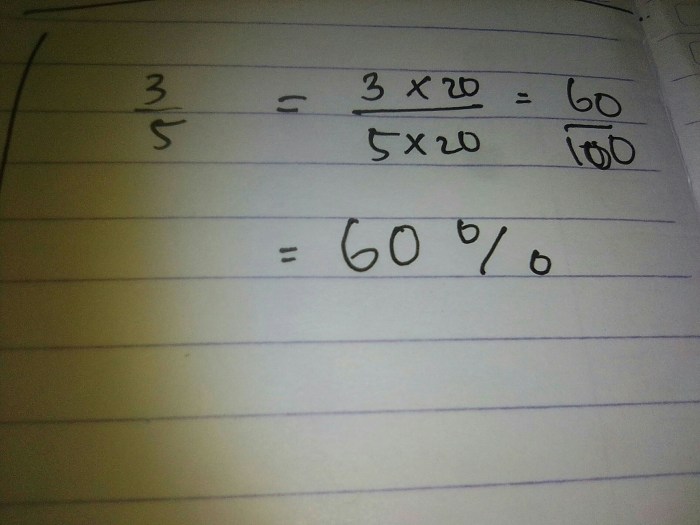 3/5 = 3 × 20 / 5 × 20 = 60/100
= 60 %